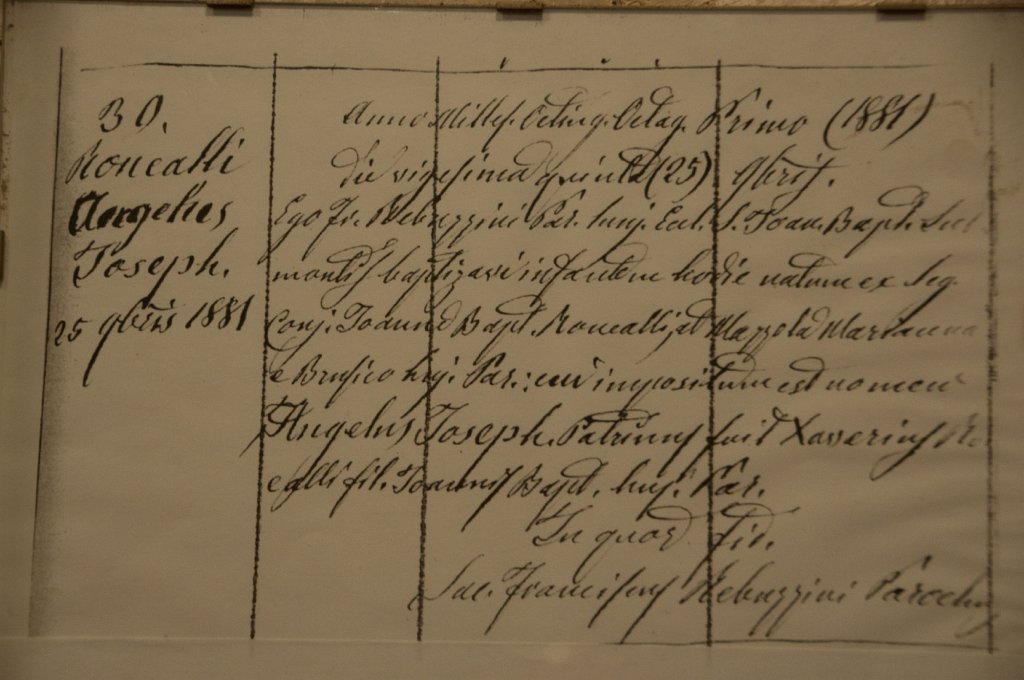 30.
Roncalli
Angelus
Joseph.
25 9bris 1881
Anno Milles. Octing. Octag. Primo (1881)
die vigesima quinta (25) 9bris.
Ego Fr. Rebuzzini Par. huj. Eccl. S. Joan. Bapt. Sub
montis baptizavi infantem hodie natum ex leg.
Conj. Joanne Bapt. Roncalli, et Mazzola Marianna
e Brusico huj. Par.: cui impositum est nomen
Angelus Joseph. Patrinus fuit Xaverius Ron
calli fil. Joannis Bapt. huj. Par.
In quor. fid.
Sac. Franciscus Rebuzzini Parochus